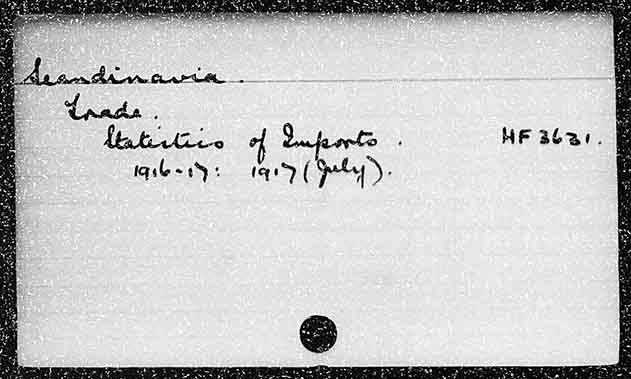 Scandinavia.
Trade.
Statistics of Imports. HF 3631.
1916-17: 1917 (July).